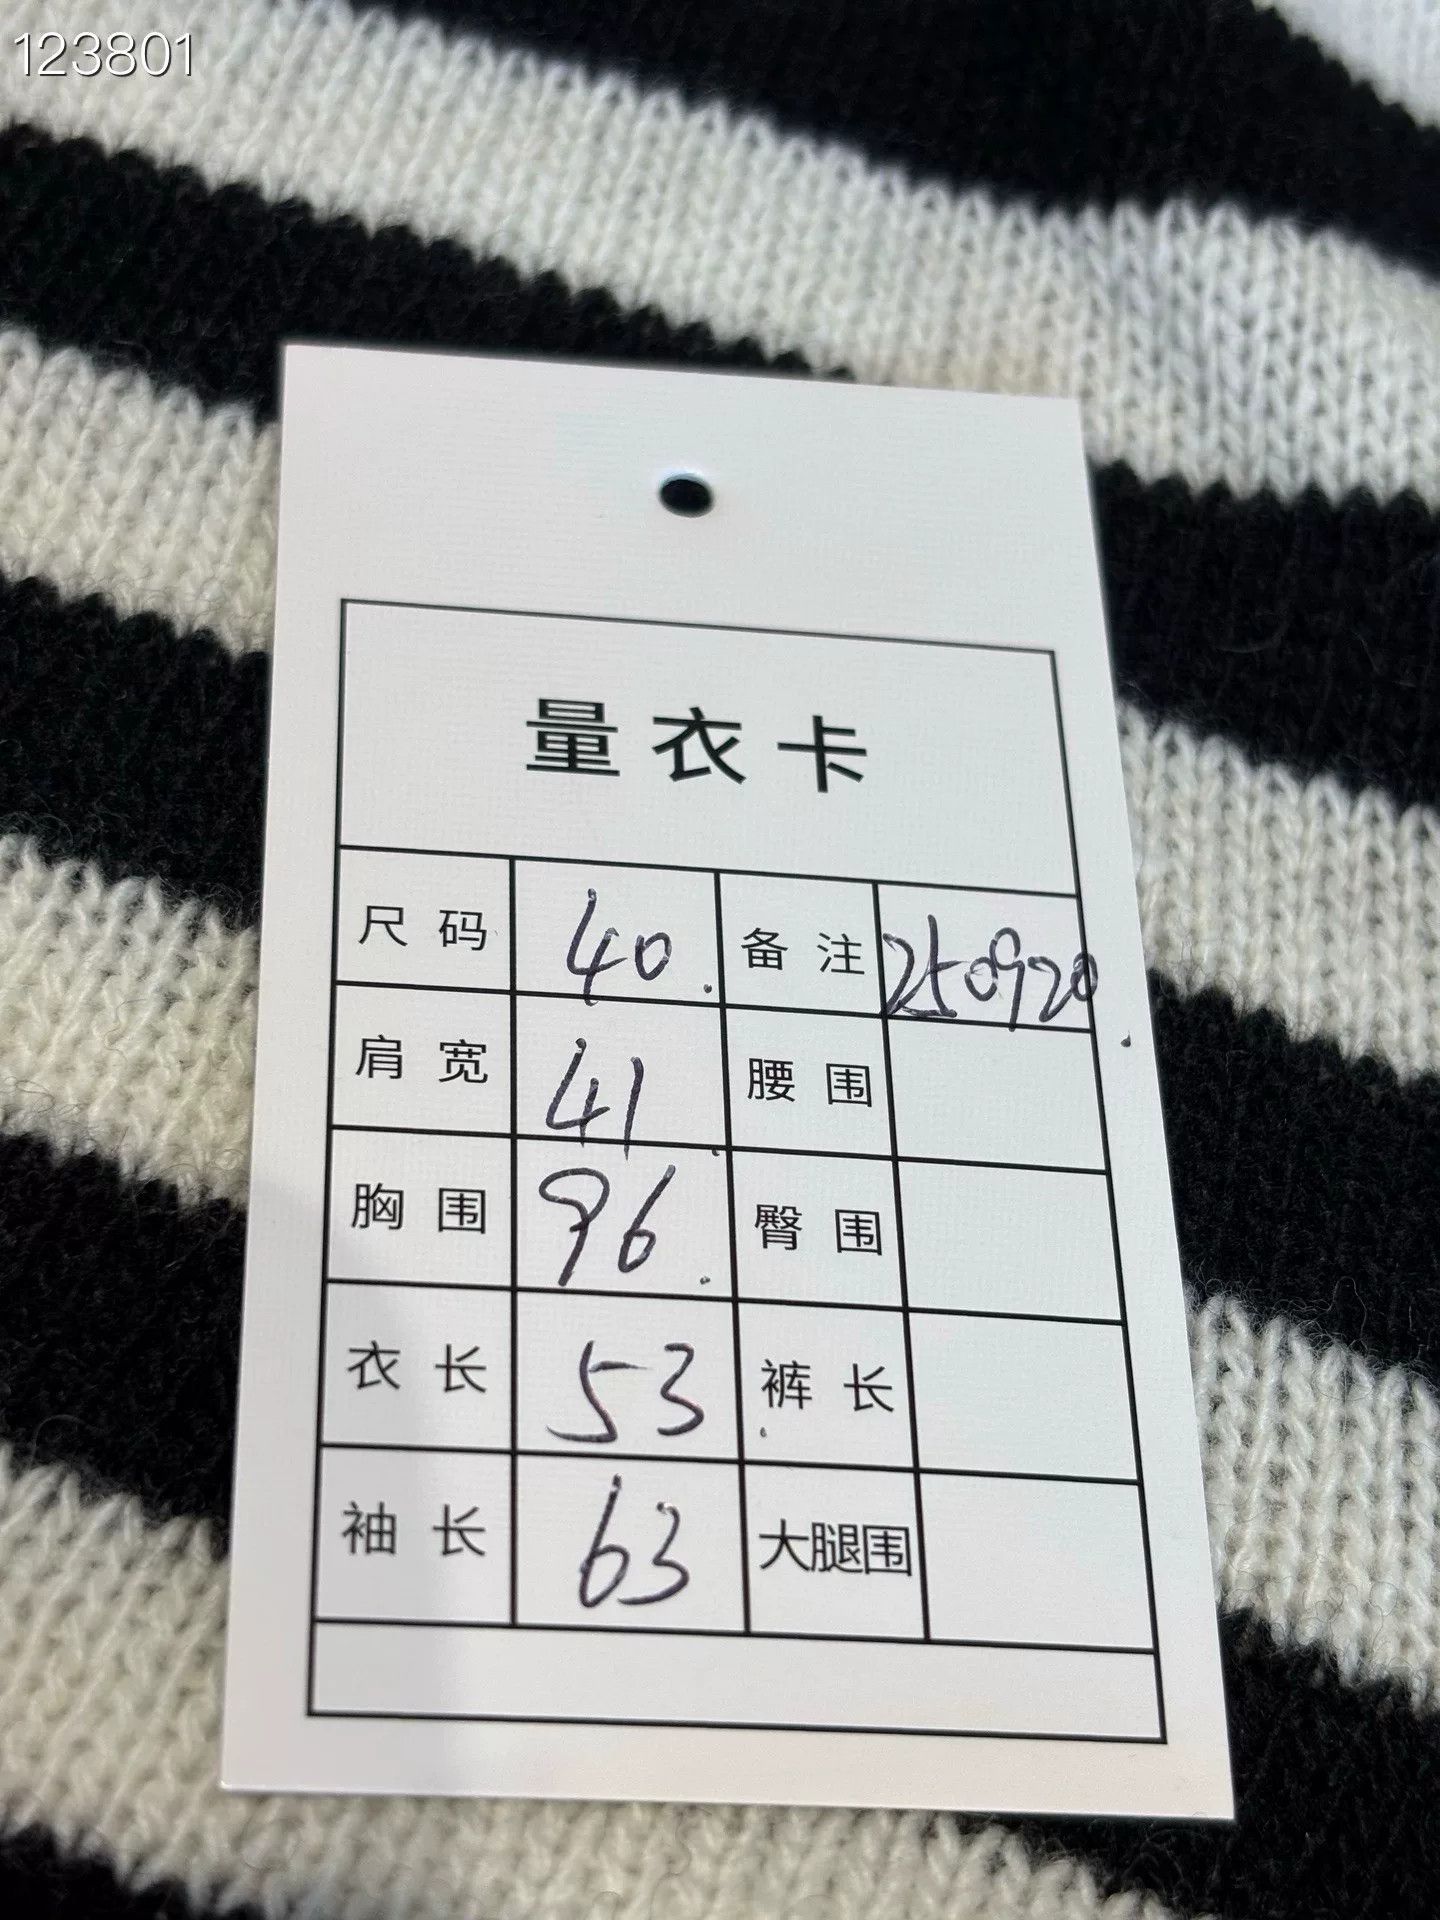 123801
量衣卡
尺码 40. 备注 250920
肩宽 41. 腰围
胸围 96. 臀围
衣长 53 裤长
袖长 63 大腿围